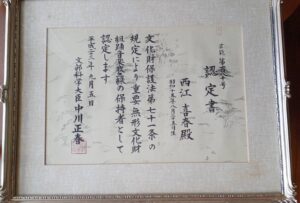 認定書
西江 喜春 殿
文化財保護法第七十一条の
規定により重要無形文化財
組踊音楽歌三線の保持者として
認定します
平成二十三年九月五日
文部科学大臣 中川正春